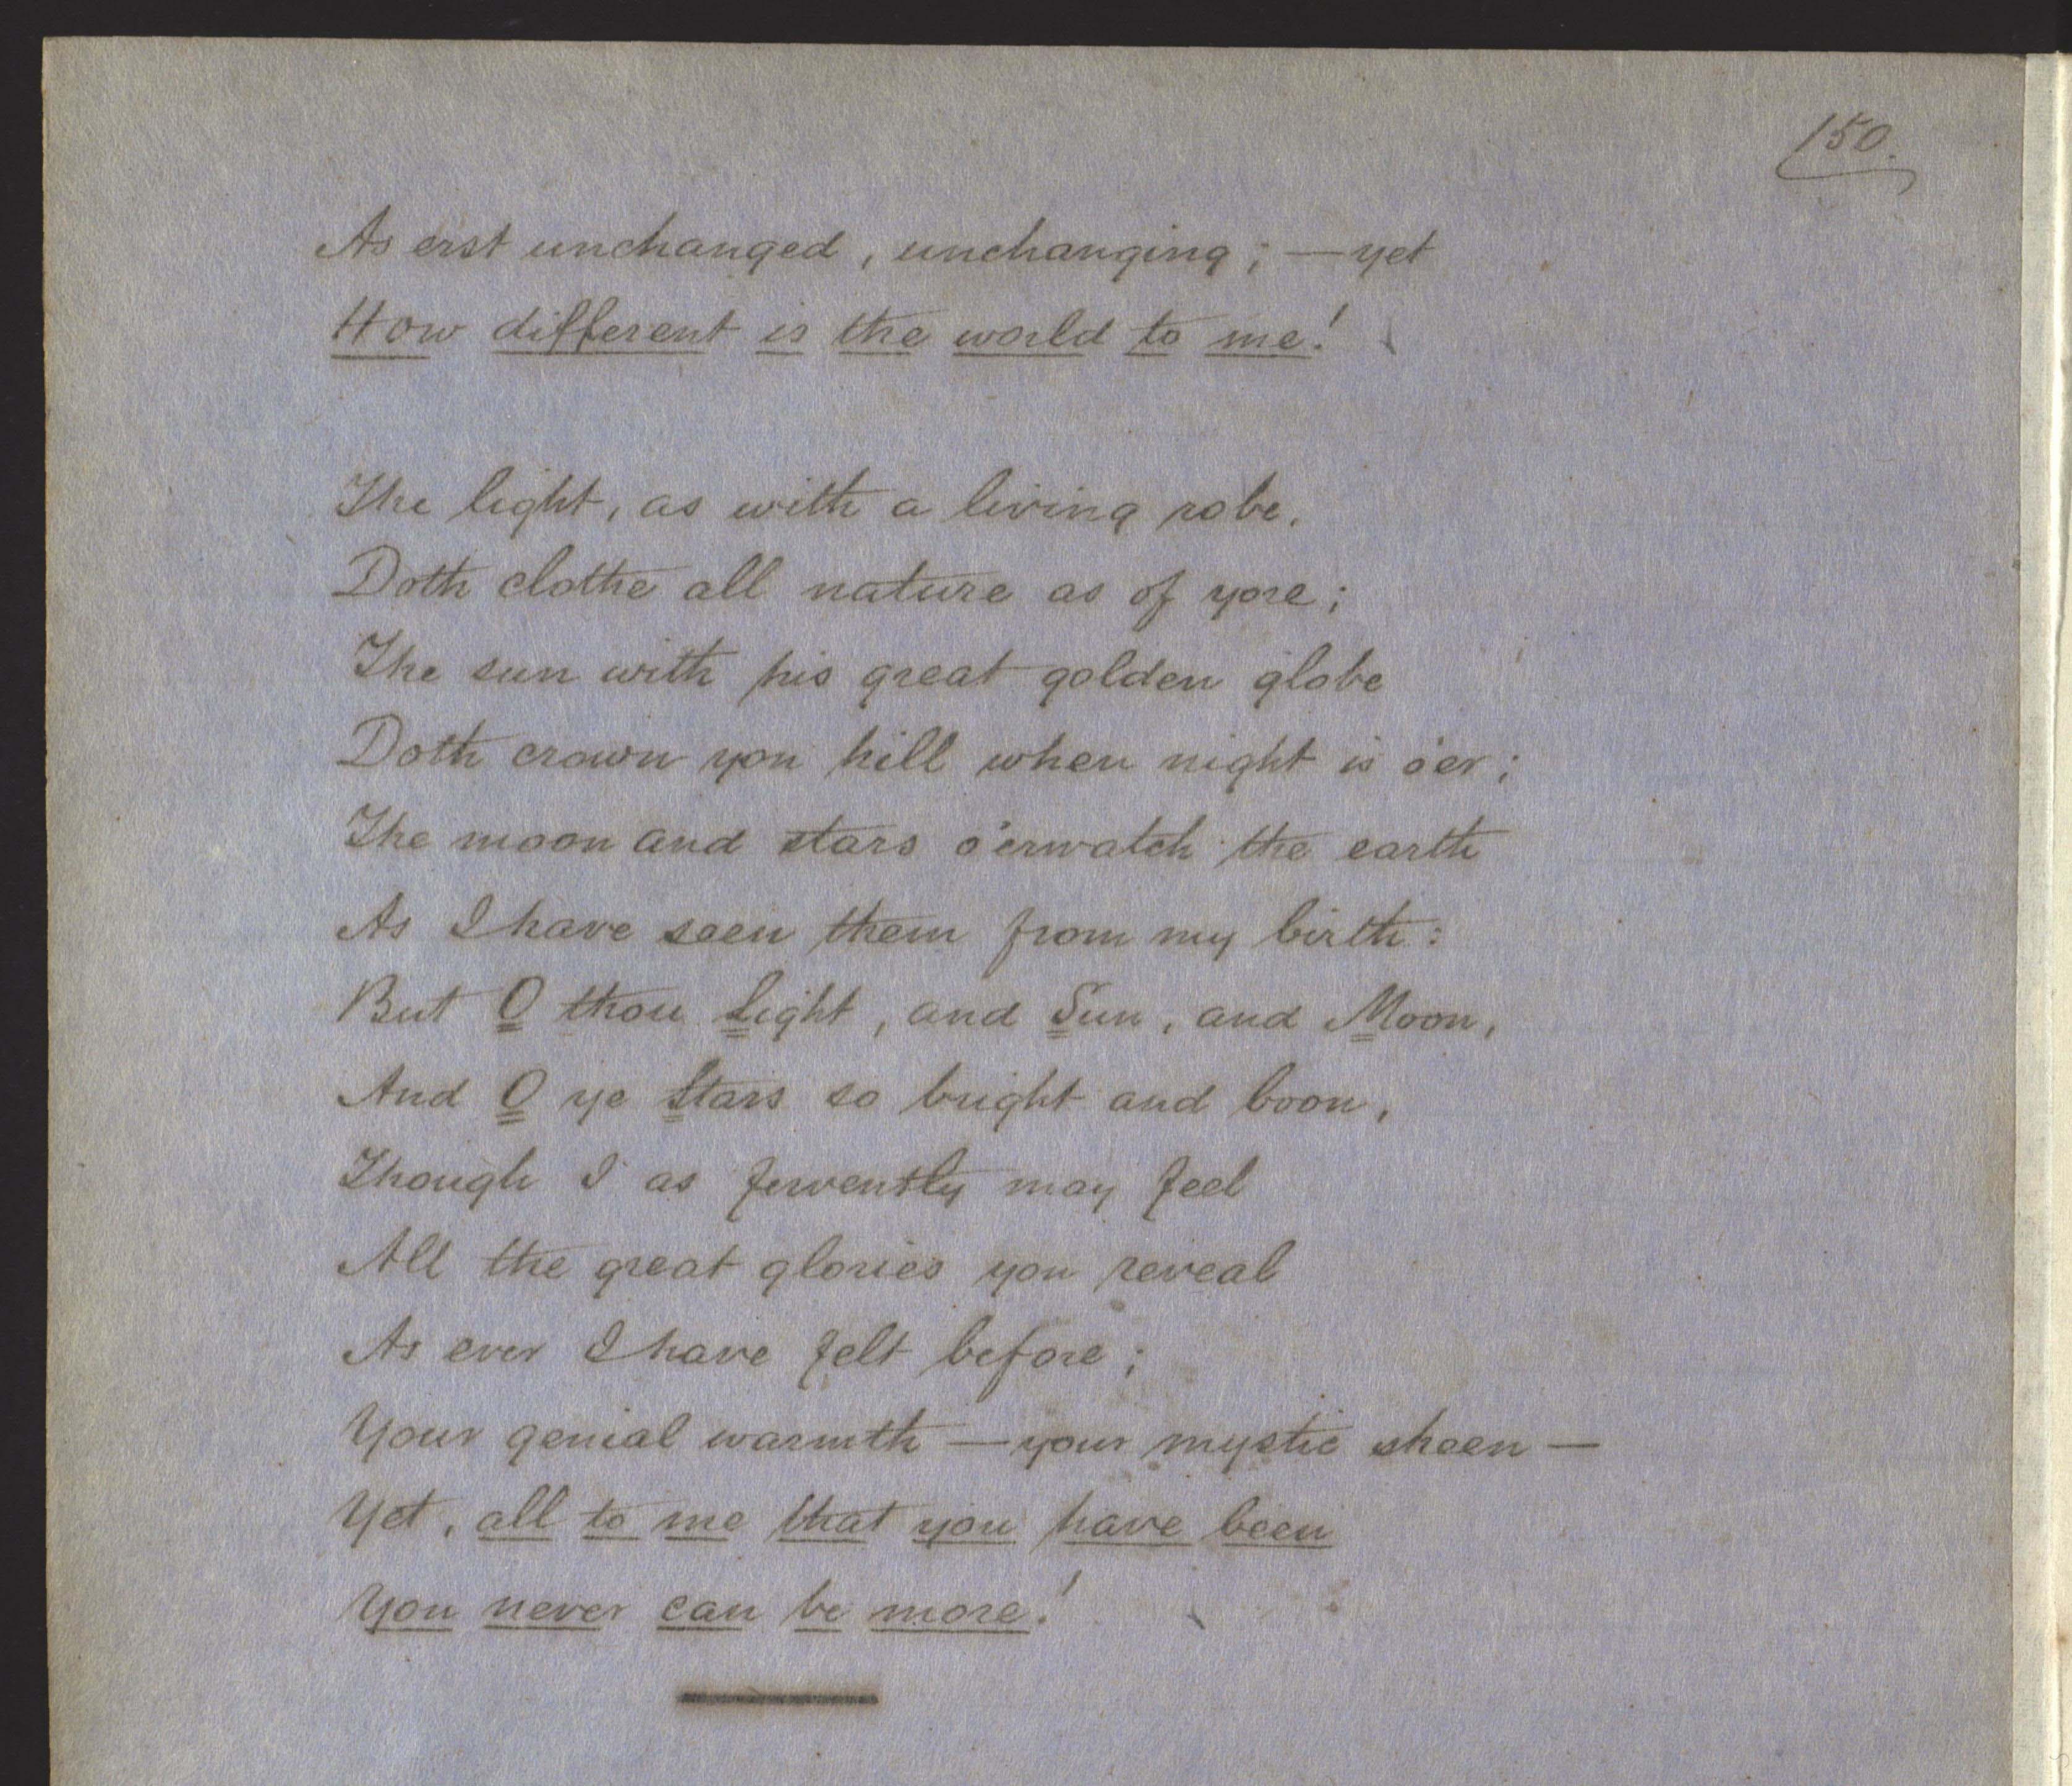 150.
As erst unchanged, unchanging; — yet
How different is the world to me!
The light, as with a living robe,
Doth clothe all nature as of yore;
The sun with his great golden globe
Doth crown yon hill when night is o'er;
The moon and stars o'erwatch the earth
As I have seen them from my birth:
But O thou Light, and Sun, and Moon,
And O ye Stars so bright and boon,
Though I as fervently may feel
All the great glories you reveal
As ever I have felt before;
Your genial warmth — your mystic sheen —
Yet, all to me that you have been
You never can be more!